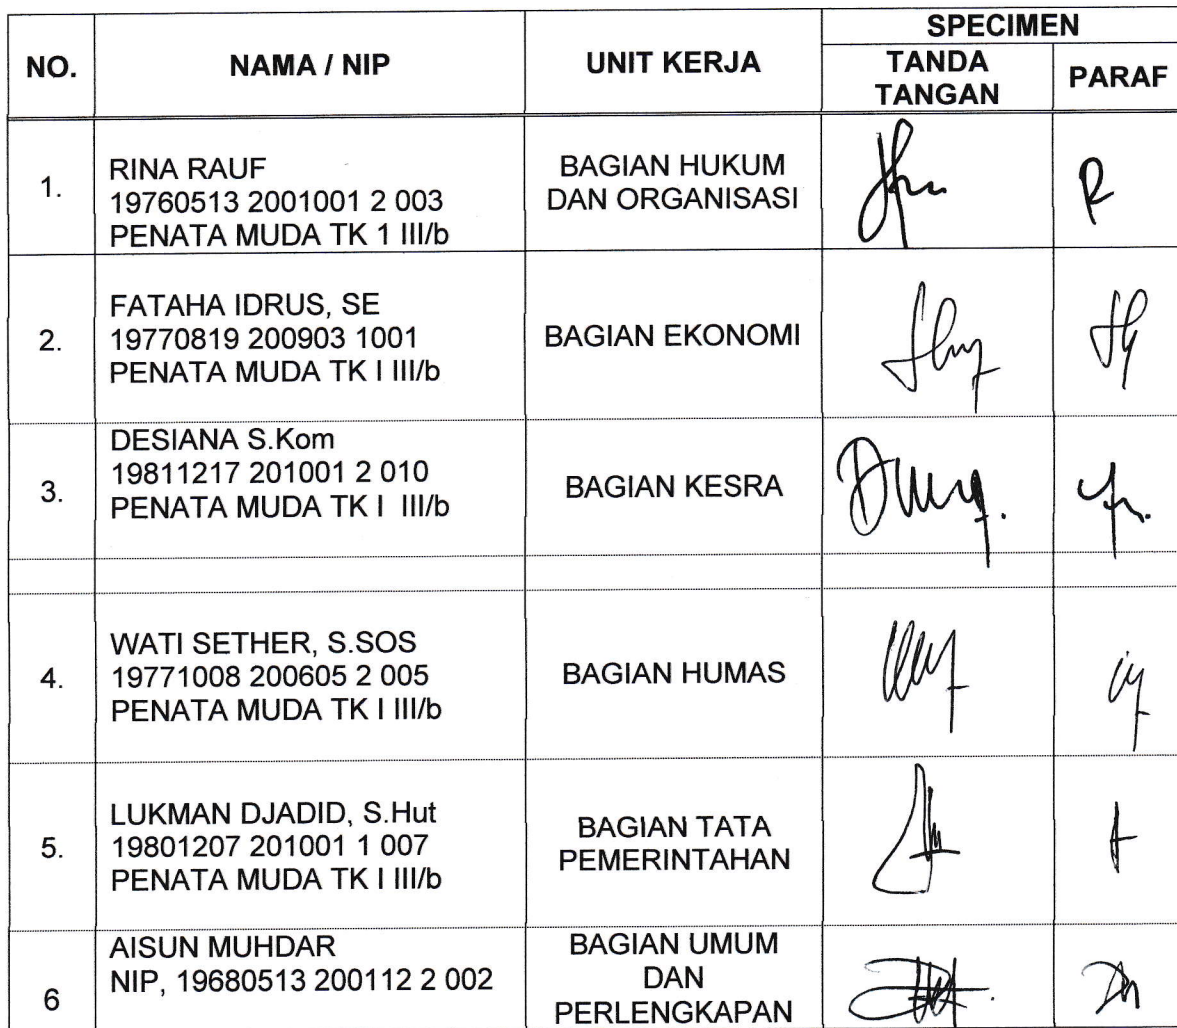 NO.
NAMA / NIP
UNIT KERJA
SPECIMEN
TANDA
TANGAN
PARAF
1.
RINA RAUF
19760513 2001001 2 003
PENATA MUDA TK 1 III/b
BAGIAN HUKUM
DAN ORGANISASI
R
2.
FATAHA IDRUS, SE
19770819 200903 1001
PENATA MUDA TK I III/b
BAGIAN EKONOMI
3.
DESIANA S.Kom
19811217 201001 2 010
PENATA MUDA TK I III/b
BAGIAN KESRA
4.
WATI SETHER, S.SOS
19771008 200605 2 005
PENATA MUDA TK I III/b
BAGIAN HUMAS
5.
LUKMAN DJADID, S.Hut
19801207 201001 1 007
PENATA MUDA TK I III/b
BAGIAN TATA
PEMERINTAHAN
6
AISUN MUHDAR
NIP, 19680513 200112 2 002
BAGIAN UMUM
DAN
PERLENGKAPAN